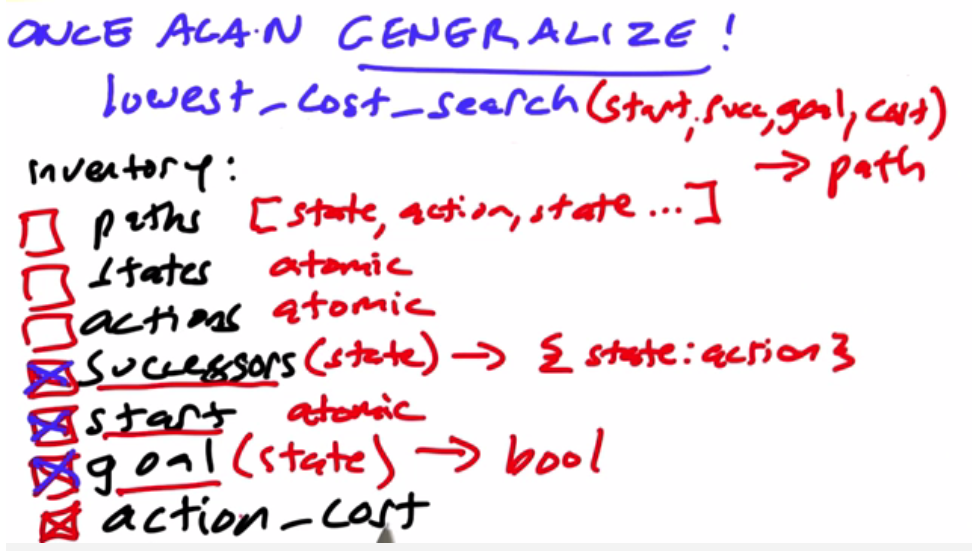 ONCE AGAIN GENERALIZE!
lowest_cost_search(start, succ, goal, cost)
→ path
inventory:
paths [state, action, state ...]
states atomic
actions atomic
successors (state) → {state:action}
start atomic
goal (state) → bool
action_cost